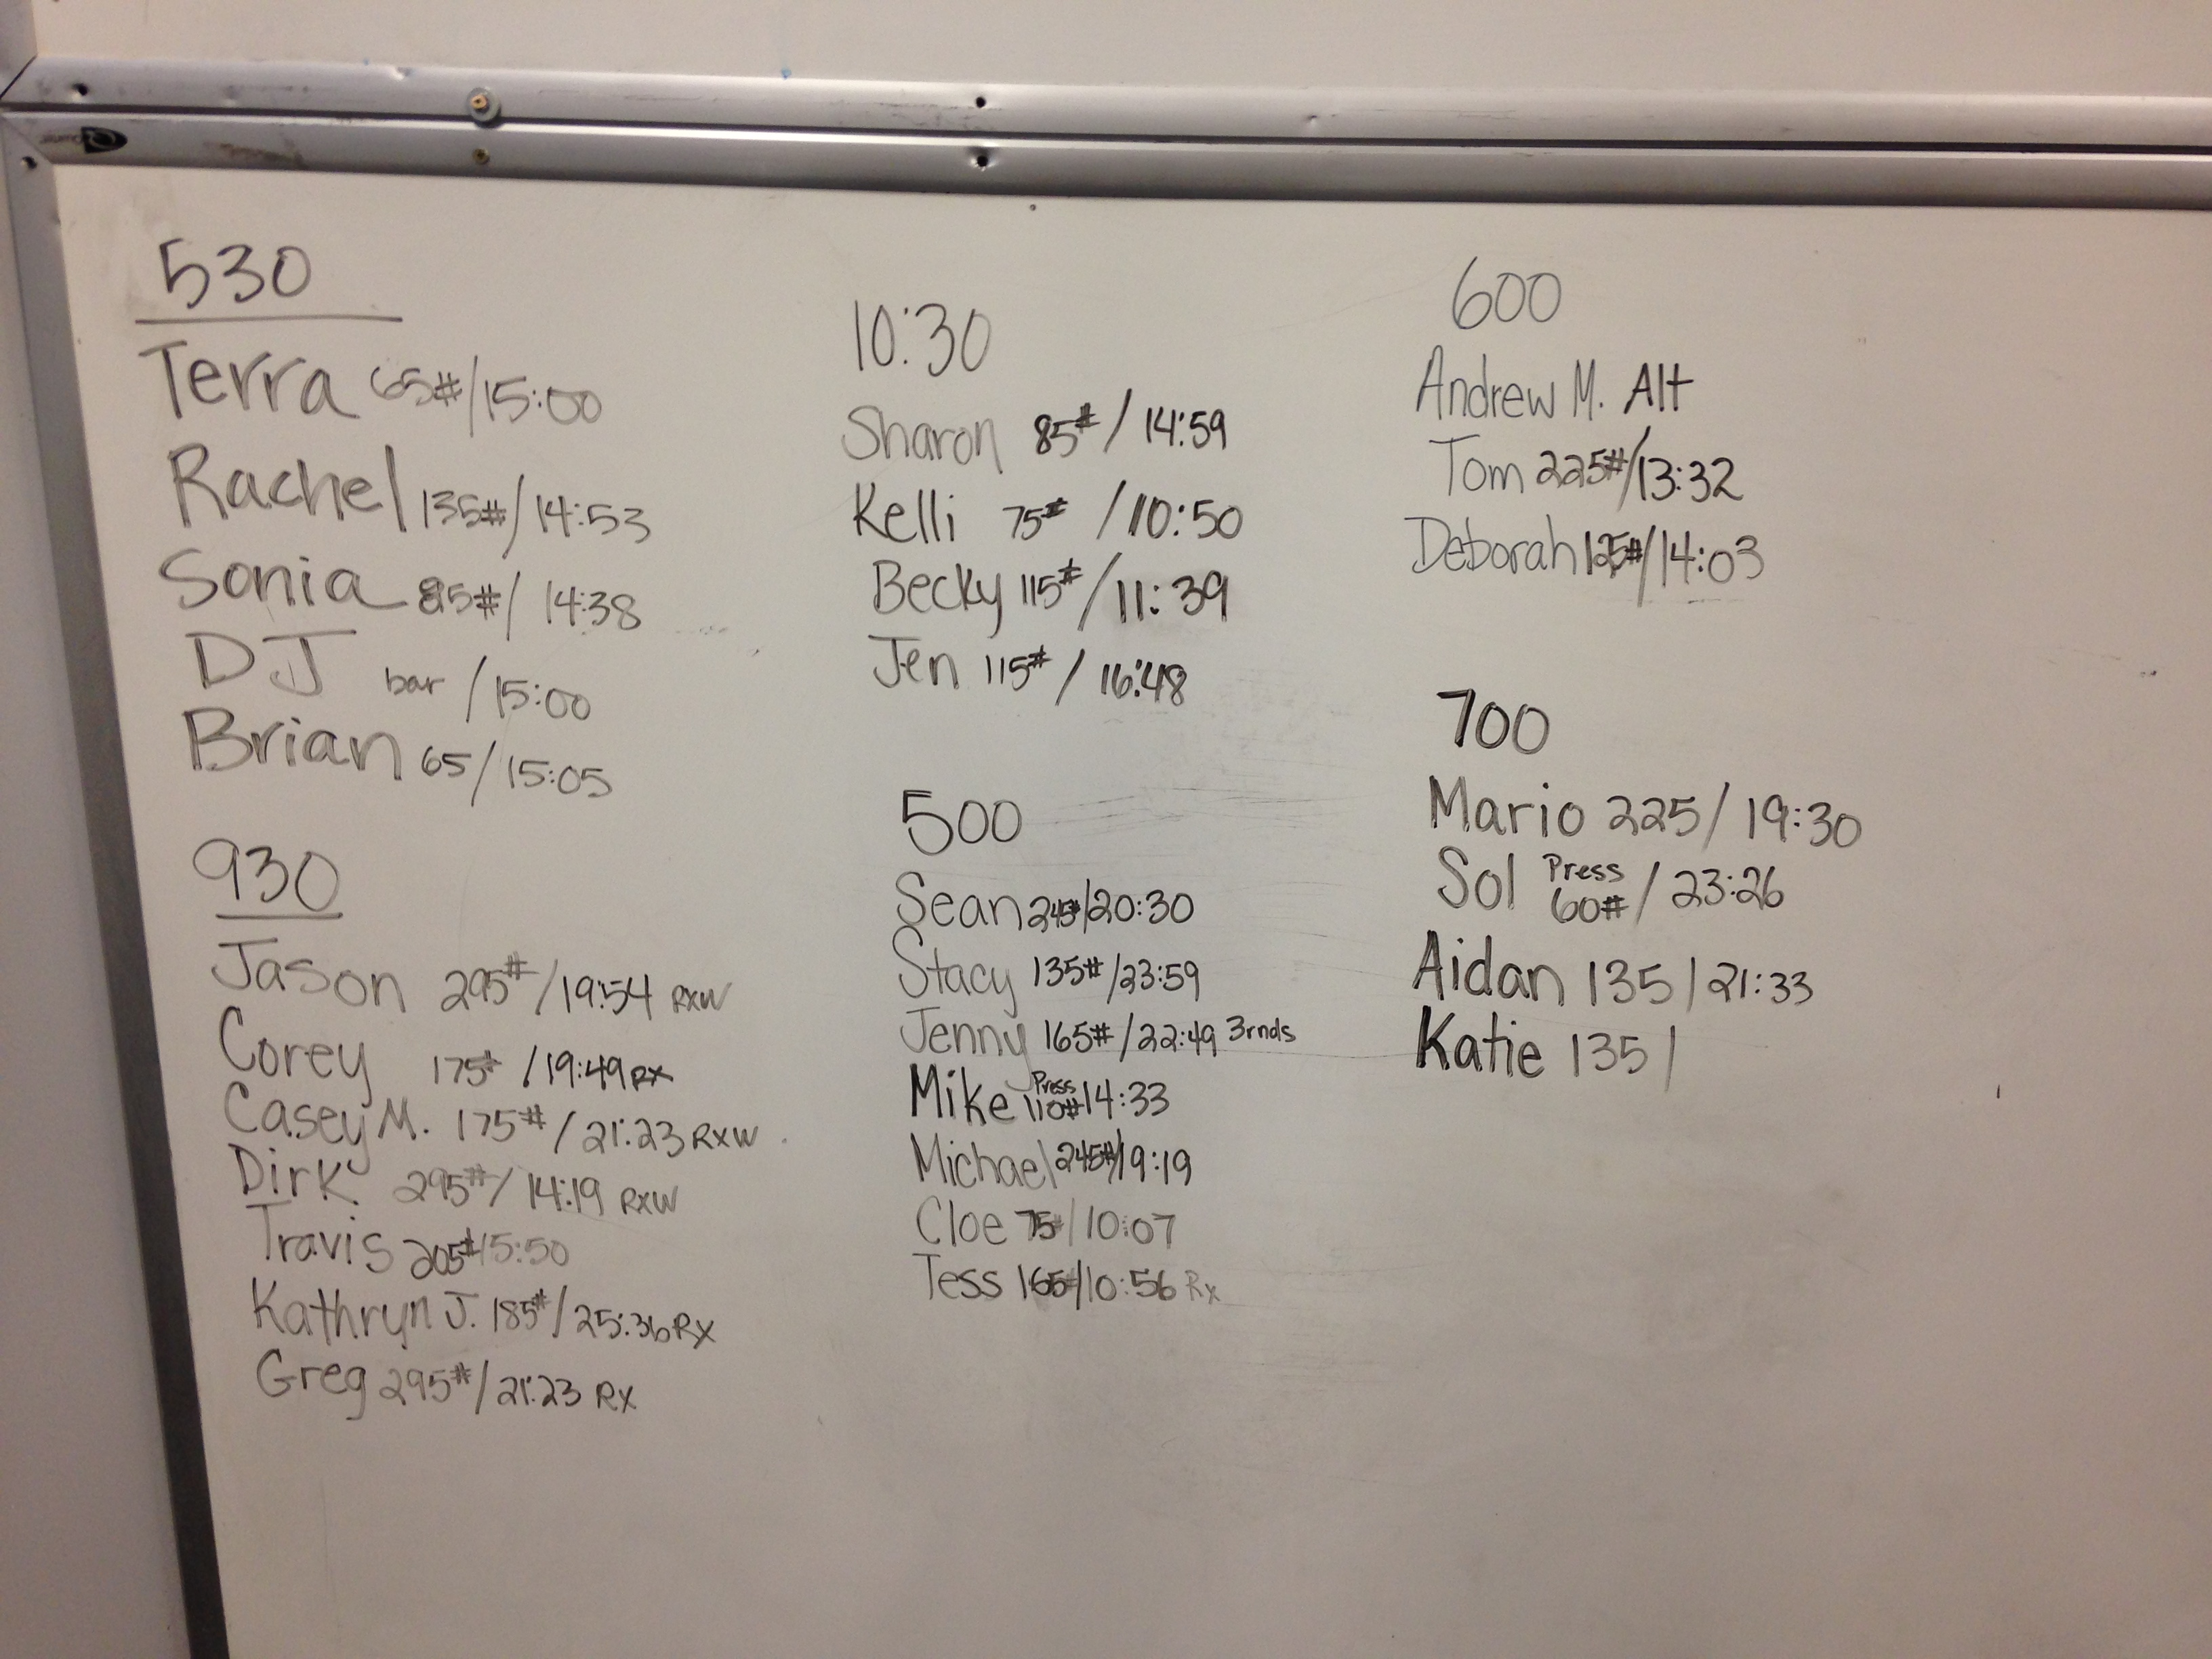 530
Terra 65#/15:00
Rachel 135#/14:53
Sonia 85#/ 14:38
DJ bar /15:00
Brian 65/15:05
930
Jason 295#/19:54 RXW
Corey 175# /19:49 RX
Casey M. 175#/21:23 RXW
Dirk 295#/14:19 RXW
Travis 205#15:50
Kathryn J. 185#/25:36 RX
Greg 295#/21:23 RX
10:30
Sharon 85#/ 14:59
Kelli 75# /10:50
Becky 115#/11:39
Jen 115# / 16:48
500
Sean 245#/20:30
Stacy 135#/23:59
Jenny 165#/22:49 3rnds
Mike Press 110# 14:33
Michael 245#/19:19
Cloe 75#/10:07
Tess 165#/10:56 Rx
600
Andrew M. Alt
Tom 225#/13:32
Deborah 125#/14:03
700
Mario 225/ 19:30
Sol Press 60# / 23:26
Aidan 135/21:33
Katie 135/